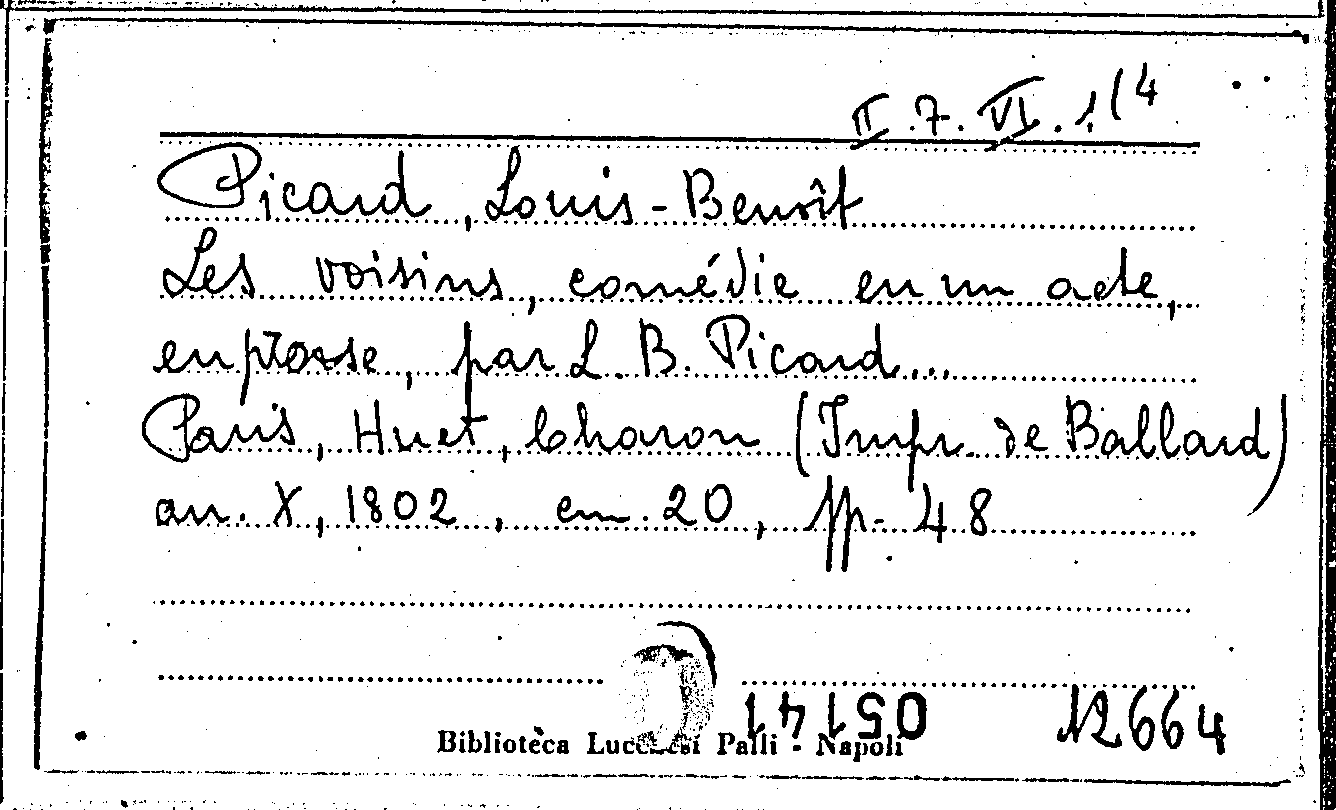 II.7.VI.1(4
Picard, Louis-Benoît
Les voisins, comédie en un acte,
en prose, par L. B. Picard...
Paris, Huet, Charon (Impr. de Ballard)
an. X, 1802, cm. 20, pp. 48
05141
12664
Biblioteca Lucchesi Palli - Napoli